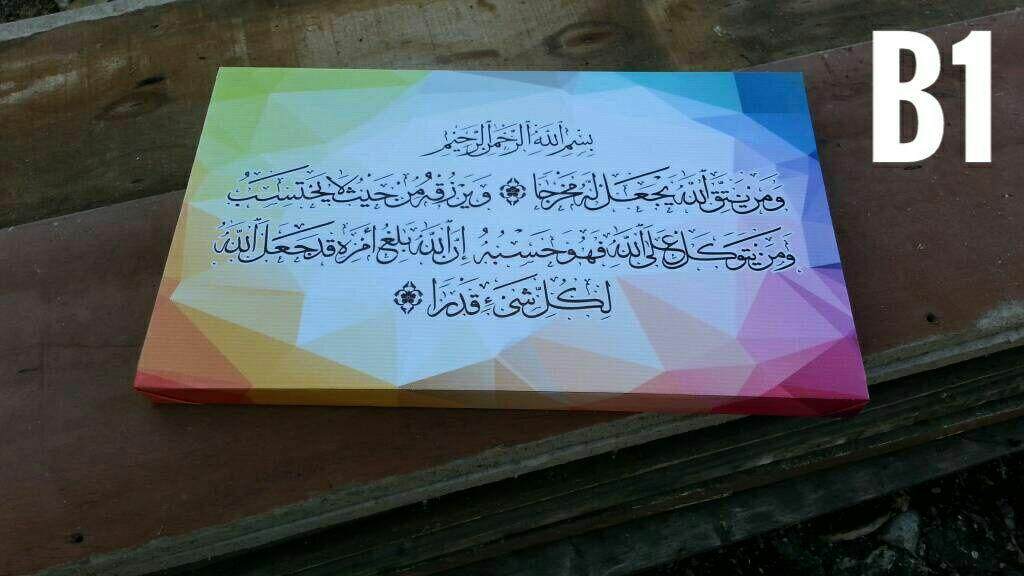 B1
بِسْمِ اللَّهِ الرَّحْمَٰنِ الرَّحِيمِ
وَمَن يَتَّقِ اللَّهَ يَجْعَل لَّهُ مَخْرَجًا ۞ وَيَرْزُقْهُ مِنْ حَيْثُ لَا يَحْتَسِبُ
وَمَن يَتَوَكَّلْ عَلَى اللَّهِ فَهُوَ حَسْبُهُ إِنَّ اللَّهَ بَالِغُ أَمْرِهِ قَدْ جَعَلَ اللَّهُ
لِكُلِّ شَيْءٍ قَدْرًا ۞